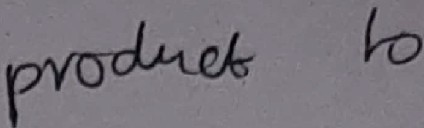 product to